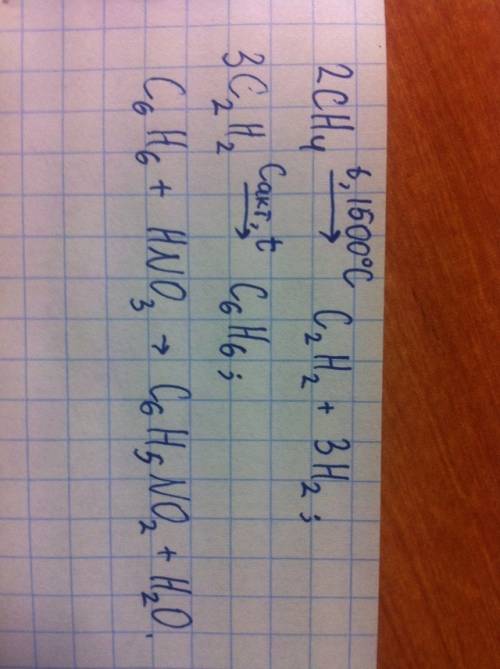 2CH₄ t,1500°C → C₂H₂ + 3H₂;
3C₂H₂ Cакт,t → C₆H₆;
C₆H₆ + HNO₃ → C₆H₅NO₂ + H₂O.